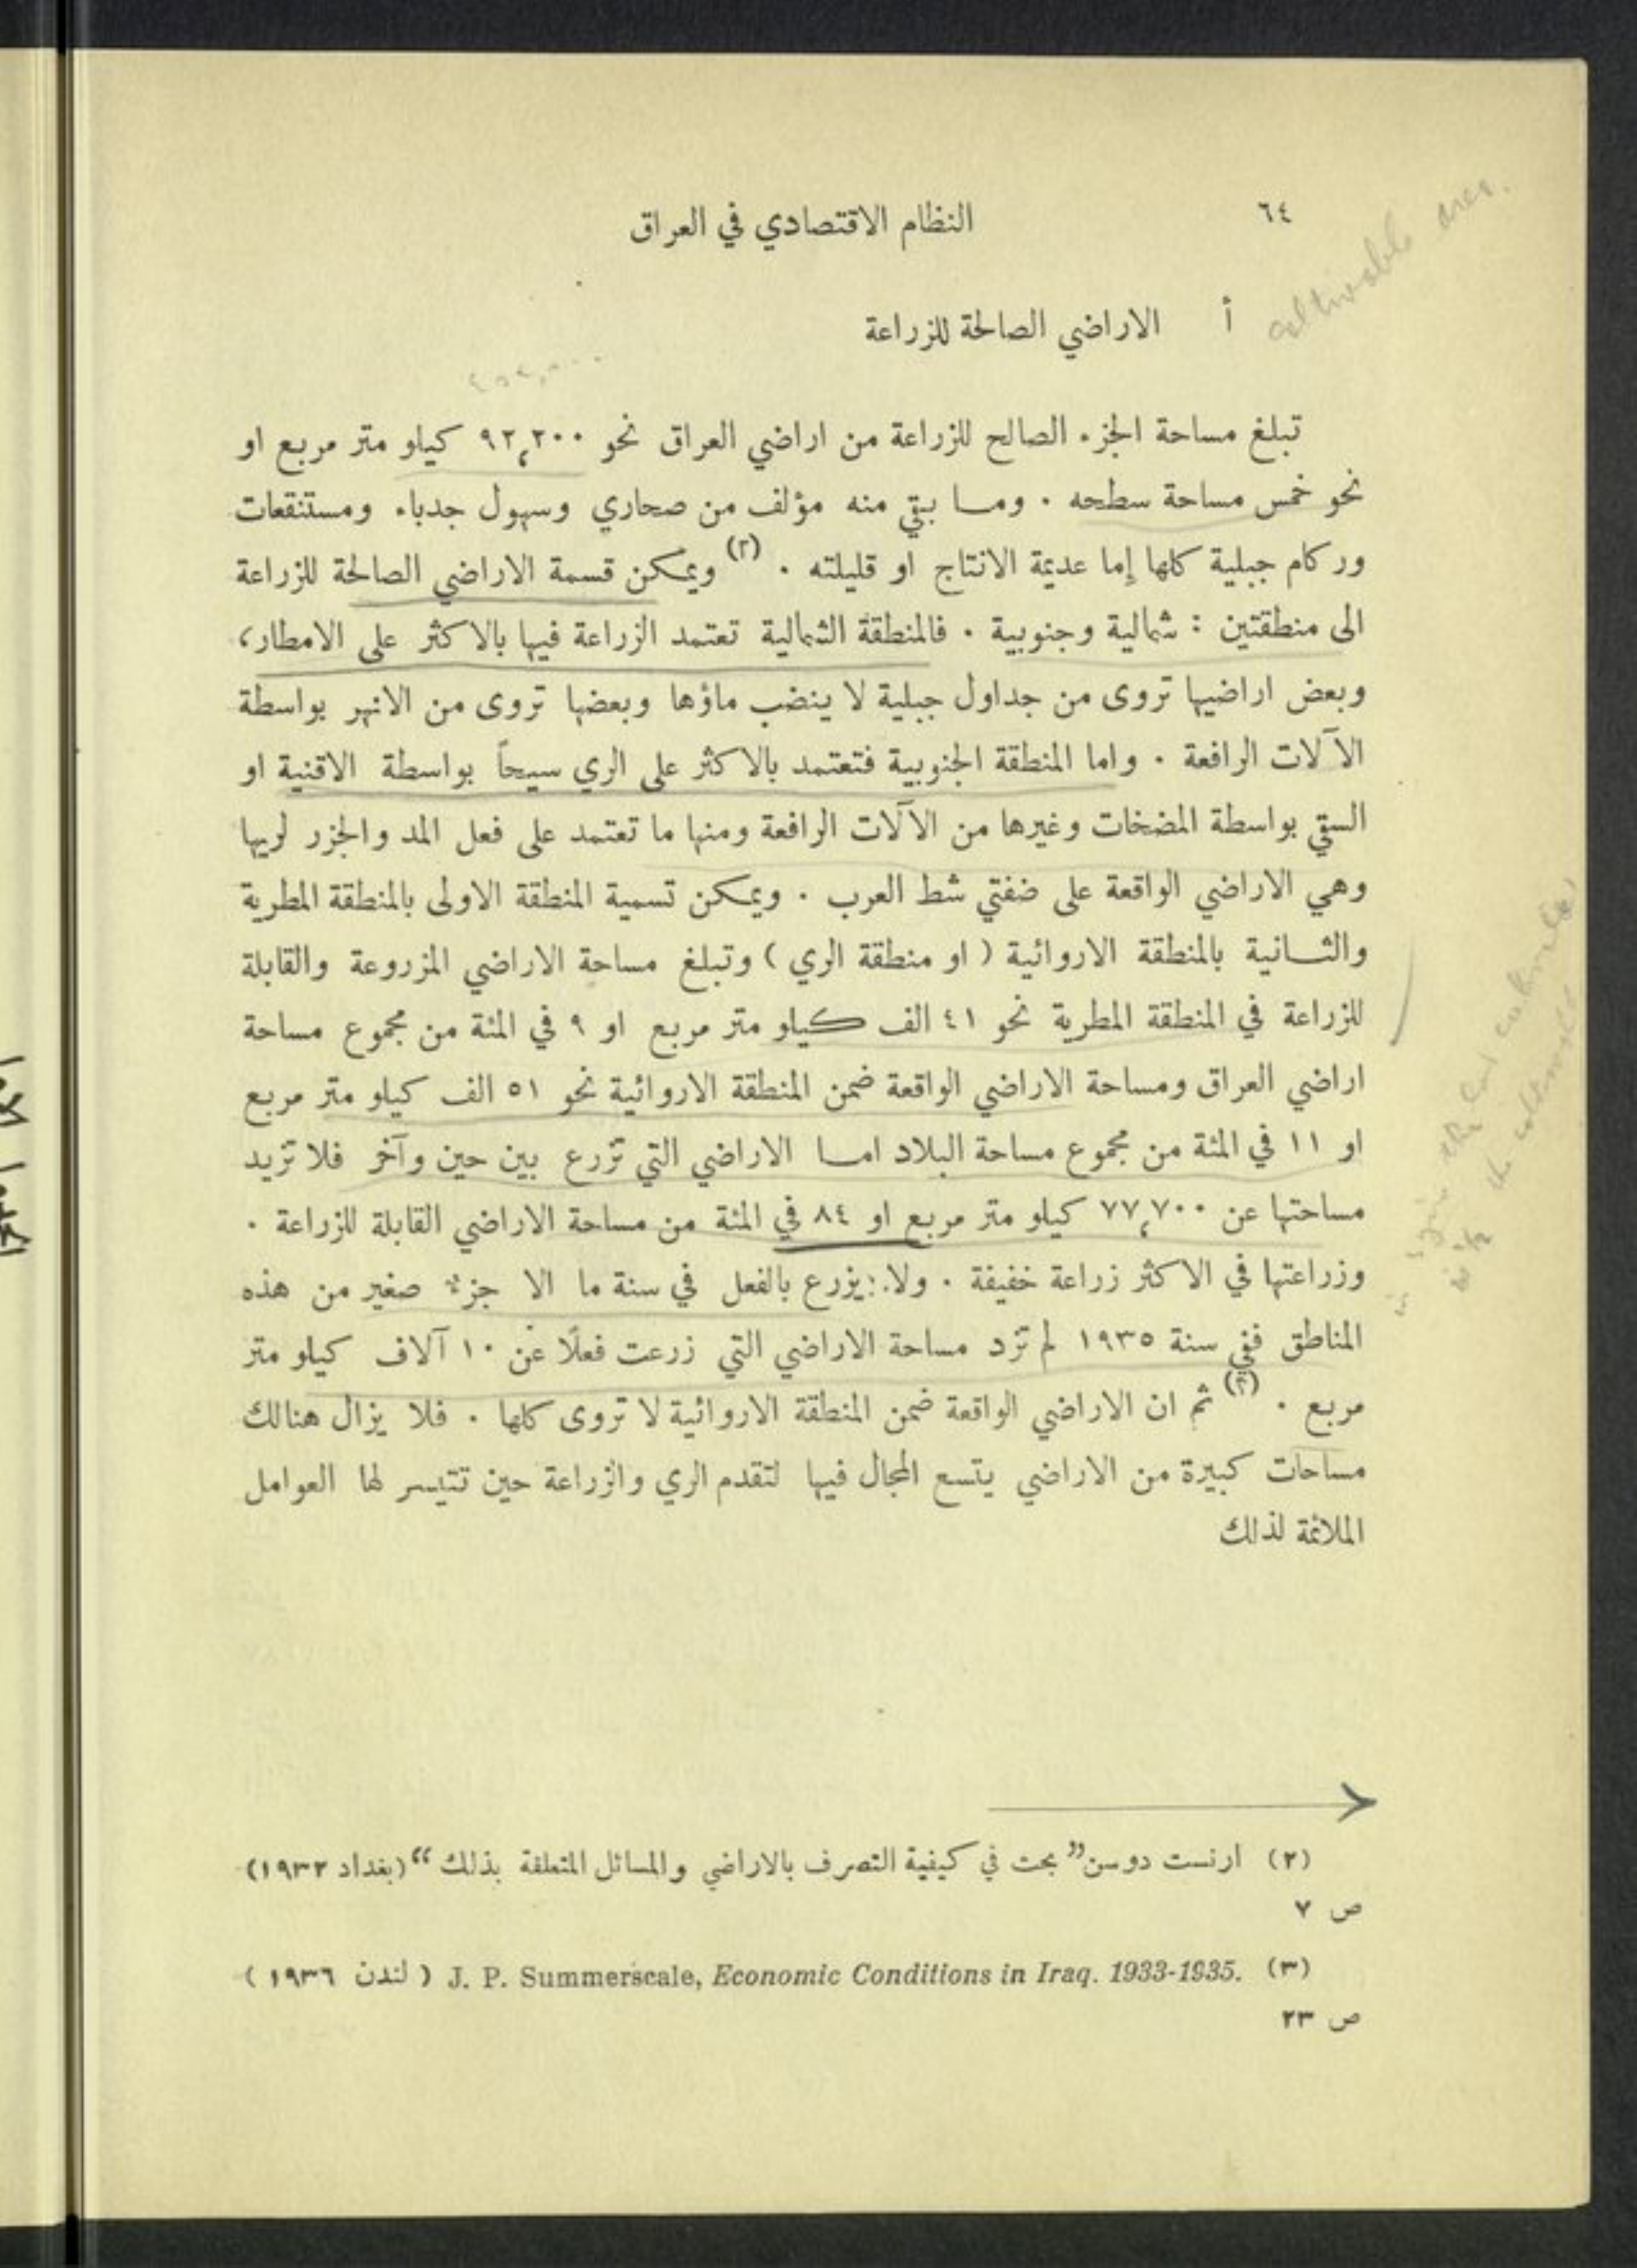 ٦٤
النظام الاقتصادي في العراق
cultivable area.
أ الاراضي الصالحة للزراعة
تبلغ مساحة الجزء الصالح للزراعة من اراضي العراق نحو ٩٢٬٢٠٠ كيلو متر مربع او
نحو خمس مساحة سطحه . وما بقي منه مؤلف من صحاري وسهول جدباء ومستنقعات
وركام جبلية كلها إما عديمة الانتاج او قليلته . (٢) ويمكن قسمة الاراضي الصالحة للزراعة
الى منطقتين : شمالية وجنوبية . فالمنطقة الشمالية تعتمد الزراعة فيها بالاكثر على الامطار،
وبعض اراضيها تروى من جداول جبلية لا ينضب ماؤها وبعضها تروى من الانهر بواسطة
الآلات الرافعة . واما المنطقة الجنوبية فتعتمد بالاكثر على الري سيحاً بواسطة الاقنية او
السقي بواسطة المضخات وغيرها من الآلات الرافعة ومنها ما تعتمد على فعل المد والجزر لريها
وهي الاراضي الواقعة على ضفتي شط العرب . ويمكن تسمية المنطقة الاولى بالمنطقة المطرية
والثانية بالمنطقة الاروائية ( او منطقة الري ) وتبلغ مساحة الاراضي المزروعة والقابلة
للزراعة في المنطقة المطرية نحو ٤١ الف كيلو متر مربع او ٩ في المئة من مجموع مساحة
اراضي العراق ومساحة الاراضي الواقعة ضمن المنطقة الاروائية نحو ٥١ الف كيلو متر مربع
او ١١ في المئة من مجموع مساحة البلاد اما الاراضي التي تزرع بين حين وآخر فلا تزيد
مساحتها عن ٧٧٬٧٠٠ كيلو متر مربع او ٨٤ في المئة من مساحة الاراضي القابلة للزراعة .
وزراعتها في الاكثر زراعة خفيفة . ولا يزرع بالفعل في سنة ما الا جزء صغير من هذه
المناطق ففي سنة ١٩٣٥ لم تزد مساحة الاراضي التي زرعت فعلًا عن ١٠ آلاف كيلو متر
مربع . (٣) ثم ان الاراضي الواقعة ضمن المنطقة الاروائية لا تروى كلها . فلا يزال هنالك
مساحات كبيرة من الاراضي يتسع المجال فيها لتقدم الري والزراعة حين تتيسر لها العوامل
الملائمة لذلك
(٢) ارنست دوسن ”بحث في كيفية التصرف بالاراضي والمسائل المتعلقة بذلك“ (بغداد ١٩٣٢)
ص ٧
(٣) J. P. Summerscale, Economic Conditions in Iraq. 1933-1935. ( لندن ١٩٣٦ )
ص ٢٣